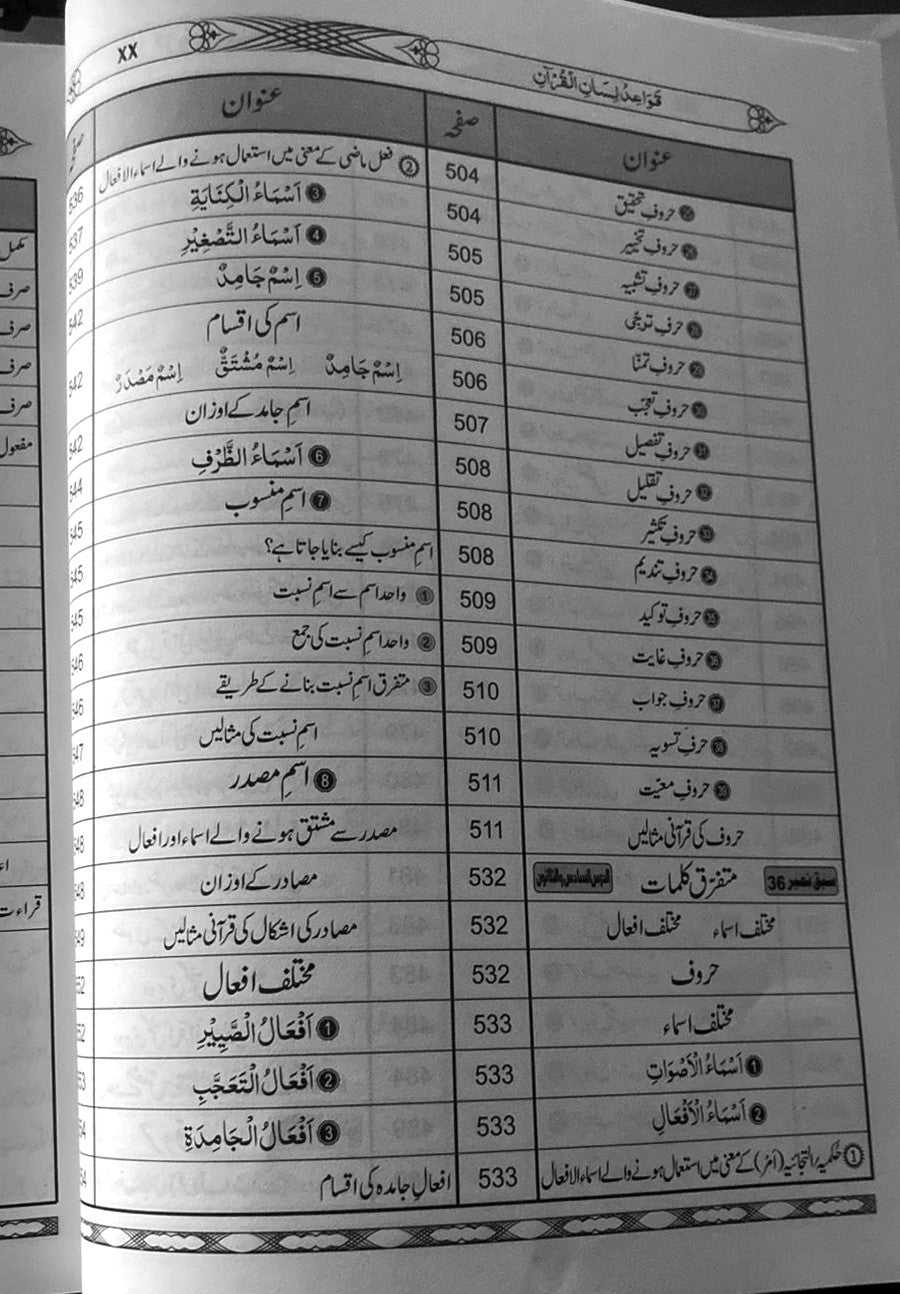 XX
قَوَاعِدُ لِسَانِ الْقُرْآنِ
عنوان صفحہ
㉕ حروفِ تحقیق 504
㉖ حروفِ تخییر 504
㉗ حروفِ تشبیہ 505
㉘ حرفِ ترجّی 505
㉙ حروفِ تمنّا 506
㉚ حروفِ تعجّب 506
㉛ حروفِ تفصیل 507
㉜ حروفِ تقلیل 508
㉝ حروفِ تکثیر 508
㉞ حروفِ تندیم 508
㉟ حروفِ توکید 509
㊱ حروفِ غایت 509
㊲ حروفِ جواب 510
㊳ حرفِ تسویہ 510
㊴ حروفِ معیّت 511
حروف کی قرآنی مثالیں 511
سبق نمبر 36 متفرّق کلمات الدرس السادس والثلاثون 532
مختلف اسماء مختلف افعال 532
حروف 532
مختلف اسماء 533
❶ اَسْمَاءُ الْاَصْوَاتِ 533
❷ اَسْمَاءُ الْاَفْعَالِ 533
① حُکمیہ/التجائیہ (اَمْر) کے معنی میں استعمال ہونے والے اسماء الافعال 533
عنوان
② فعل ماضی کے معنی میں استعمال ہونے والے اسماء الافعال 536
❸ اَسْمَاءُ الْكِنَايَةِ 537
❹ اَسْمَاءُ التَّصْغِيْرِ 539
❺ اِسْمٌ جَامِدٌ 542
اسم کی اقسام
اِسْمٌ جَامِدٌ اِسْمٌ مُشْتَقٌّ اِسْمٌ مَصْدَرٌ 542
اسمِ جامد کے اوزان 542
❻ اَسْمَاءُ الظَّرْفِ 544
❼ اسمِ منسوب 545
اسمِ منسوب کیسے بنایا جاتا ہے؟ 545
① واحد اسم سے اسمِ نسبت 545
② واحد اسمِ نسبت کی جمع 546
③ متفرق اسمِ نسبت بنانے کے طریقے 546
اسمِ نسبت کی مثالیں 547
❽ اسمِ مصدر 548
مصدر سے مشتق ہونے والے اسماء اور افعال 548
مصادر کے اوزان
مصادر کی اشکال کی قرآنی مثالیں
مختلف افعال
❶ اَفْعَالُ الصَّيِيْرِ
❷ اَفْعَالُ التَّعَجُّبِ
❸ اَفْعَالُ الْجَامِدَةِ
افعالِ جامدہ کی اقسام
مکمل
صرف
صرف
صرف
صرف
مفعول
قراءت